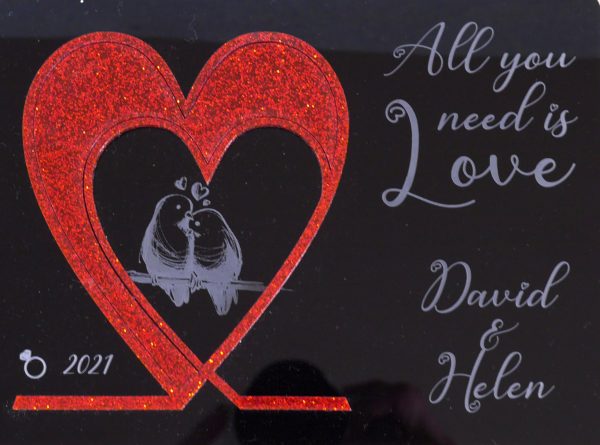 All you
need is
Love
David
&
Helen
2021